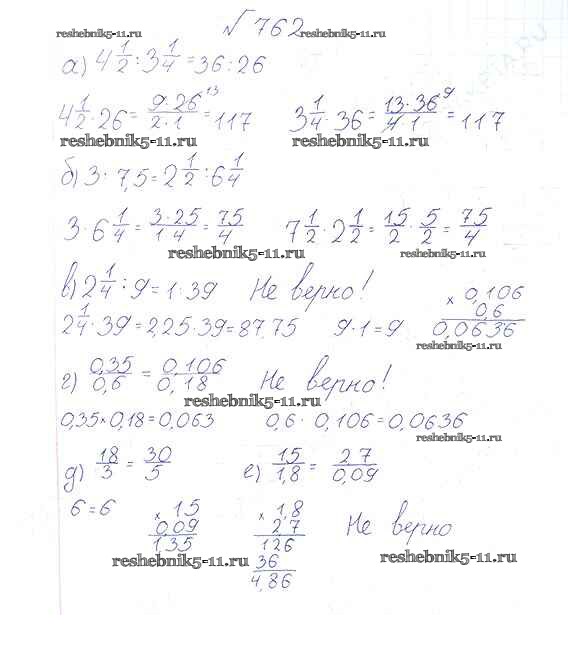 №762
reshebnik5-11.ru reshebnik5-11.ru
а) 4 1/2 : 3 1/4 = 36 : 26
4 1/2 · 26 = 9·26 13 / 2·1 = 117 3 1/4 · 36 = 13·36 9 / 4·1 = 117
reshebnik5-11.ru reshebnik5-11.ru
б) 3 · 7,5 = 2 1/2 : 6 1/4
3 · 6 1/4 = 3·25 / 1·4 = 75/4 7 1/2 · 2 1/2 = 15/2 · 5/2 = 75/4
reshebnik5-11.ru reshebnik5-11.ru
в) 2 1/4 : 9 = 1 · 39 Не верно! × 0,106
0,6
2 1/4 · 39 = 2,25 · 39 = 87,75 9 · 1 = 9 0,0636
reshebnik5-11.ru
г) 0,35/0,6 = 0,106/0,18 Не верно!
reshebnik5-11.ru
0,35 × 0,18 = 0,063 0,6 · 0,106 = 0,0636
reshebnik5-11.ru
д) 18/3 = 30/5 е) 15/1,8 = 27/0,09
6 = 6 × 15 × 1,8 Не верно
0,09 2 7
1,35 126
reshebnik5-11.ru 36 reshebnik5-11.ru
4,86